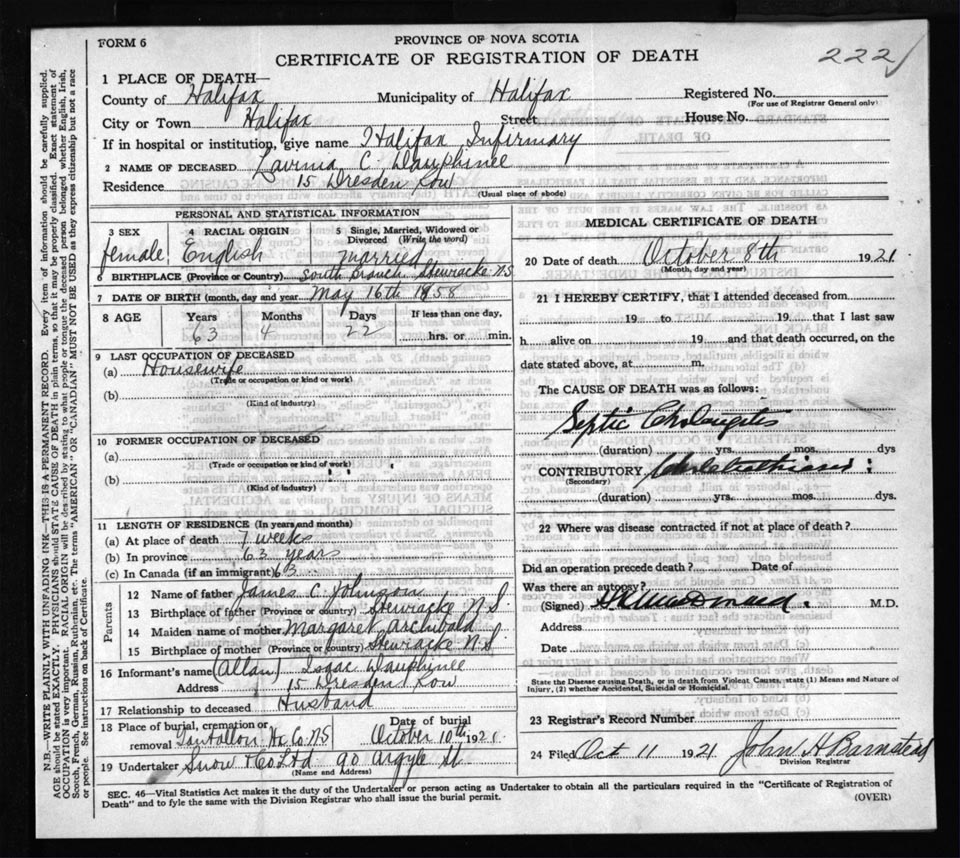 FORM 6
PROVINCE OF NOVA SCOTIA
CERTIFICATE OF REGISTRATION OF DEATH
222
1 PLACE OF DEATH—
County of Halifax Municipality of Halifax Registered No.
(For use of Registrar General only)
City or Town Halifax Street House No.
If in hospital or institution, give name Halifax Infirmary
2 NAME OF DECEASED Lavinia C. Dauphinee
Residence 15 Dresden Row
(Usual place of abode)
PERSONAL AND STATISTICAL INFORMATION
3 SEX 4 RACIAL ORIGIN 5 Single, Married, Widowed or Divorced (Write the word)
female English married
6 BIRTHPLACE (Province or Country) South Branch Stewiacke N.S
7 DATE OF BIRTH (month, day and year May 16th 1958
8 AGE Years Months Days If less than one day,
63 4 22 hrs. or min.
9 LAST OCCUPATION OF DECEASED
(a) Housewife
(Trade or occupation or kind or work)
(b)
(Kind of industry)
10 FORMER OCCUPATION OF DECEASED
(a)
(Trade or occupation or kind of work)
(b)
(Kind of industry)
11 LENGTH OF RESIDENCE (In years and months)
(a) At place of death 7 weeks
(b) In province 63 years
(c) In Canada (if an immigrant) 63
Parents
12 Name of father James C. Johnson
13 Birthplace of father (Province or country) Stewiacke N S
14 Maiden name of mother Margaret Archibald
15 Birthplace of mother (Province or country) Stewiacke N.S
16 Informant's name (Allan) Isaac Dauphinee
Address 15 Dresden Row
17 Relationship to deceased Husband
18 Place of burial, cremation or removal Tantallon Hx Co NS Date of burial October 10th 1921
19 Undertaker Snow & Co Ltd 90 Argyle St.
(Name and Address)
MEDICAL CERTIFICATE OF DEATH
20 Date of death October 8th 1921
(Month, day and year)
21 I HEREBY CERTIFY, that I attended deceased from
19 to 19 that I last saw
h alive on 19 and that death occurred, on the
date stated above, at m.
The CAUSE OF DEATH was as follows:
Septic Cholangitis
(duration) yrs. mos. dys
CONTRIBUTORY
(Secondary)
(duration) yrs. mos. dys.
22 Where was disease contracted if not at place of death?
Did an operation precede death? Date of
Was there an autopsy?
(Signed) M.D.
Address
Date
State the Disease causing Death, or in death from Violent Causes, state (1) Means and Nature of
Injury, (2) whether Accidental, Suicidal or Homicidal.
23 Registrar's Record Number
24 Filed Oct 11 1921 John H Barnstead
Division Registrar
SEC. 46—Vital Statistics Act makes it the duty of the Undertaker or person acting as Undertaker to obtain all the particulars required in the "Certificate of Registration of
Death" and to fyle the same with the Division Registrar who shall issue the burial permit. (OVER)
N.B.—WRITE PLAINLY WITH UNFADING INK—THIS IS A PERMANENT RECORD. Every item of information should be carefully supplied.
AGE should be stated EXACTLY. PHYSICIANS should STATE CAUSE OF DEATH in plain terms, so that it may be properly classified. Exact statement of
OCCUPATION is very important. RACIAL ORIGIN will be described by stating to what people or tongue the deceased person belonged, whether English, Irish,
Scotch, French, German, Russian, Ruthenian, etc. The terms "AMERICAN" OR "CANADIAN" MUST NOT BE USED as they express citizenship but not a race
or people. See instructions on back of Certificate.